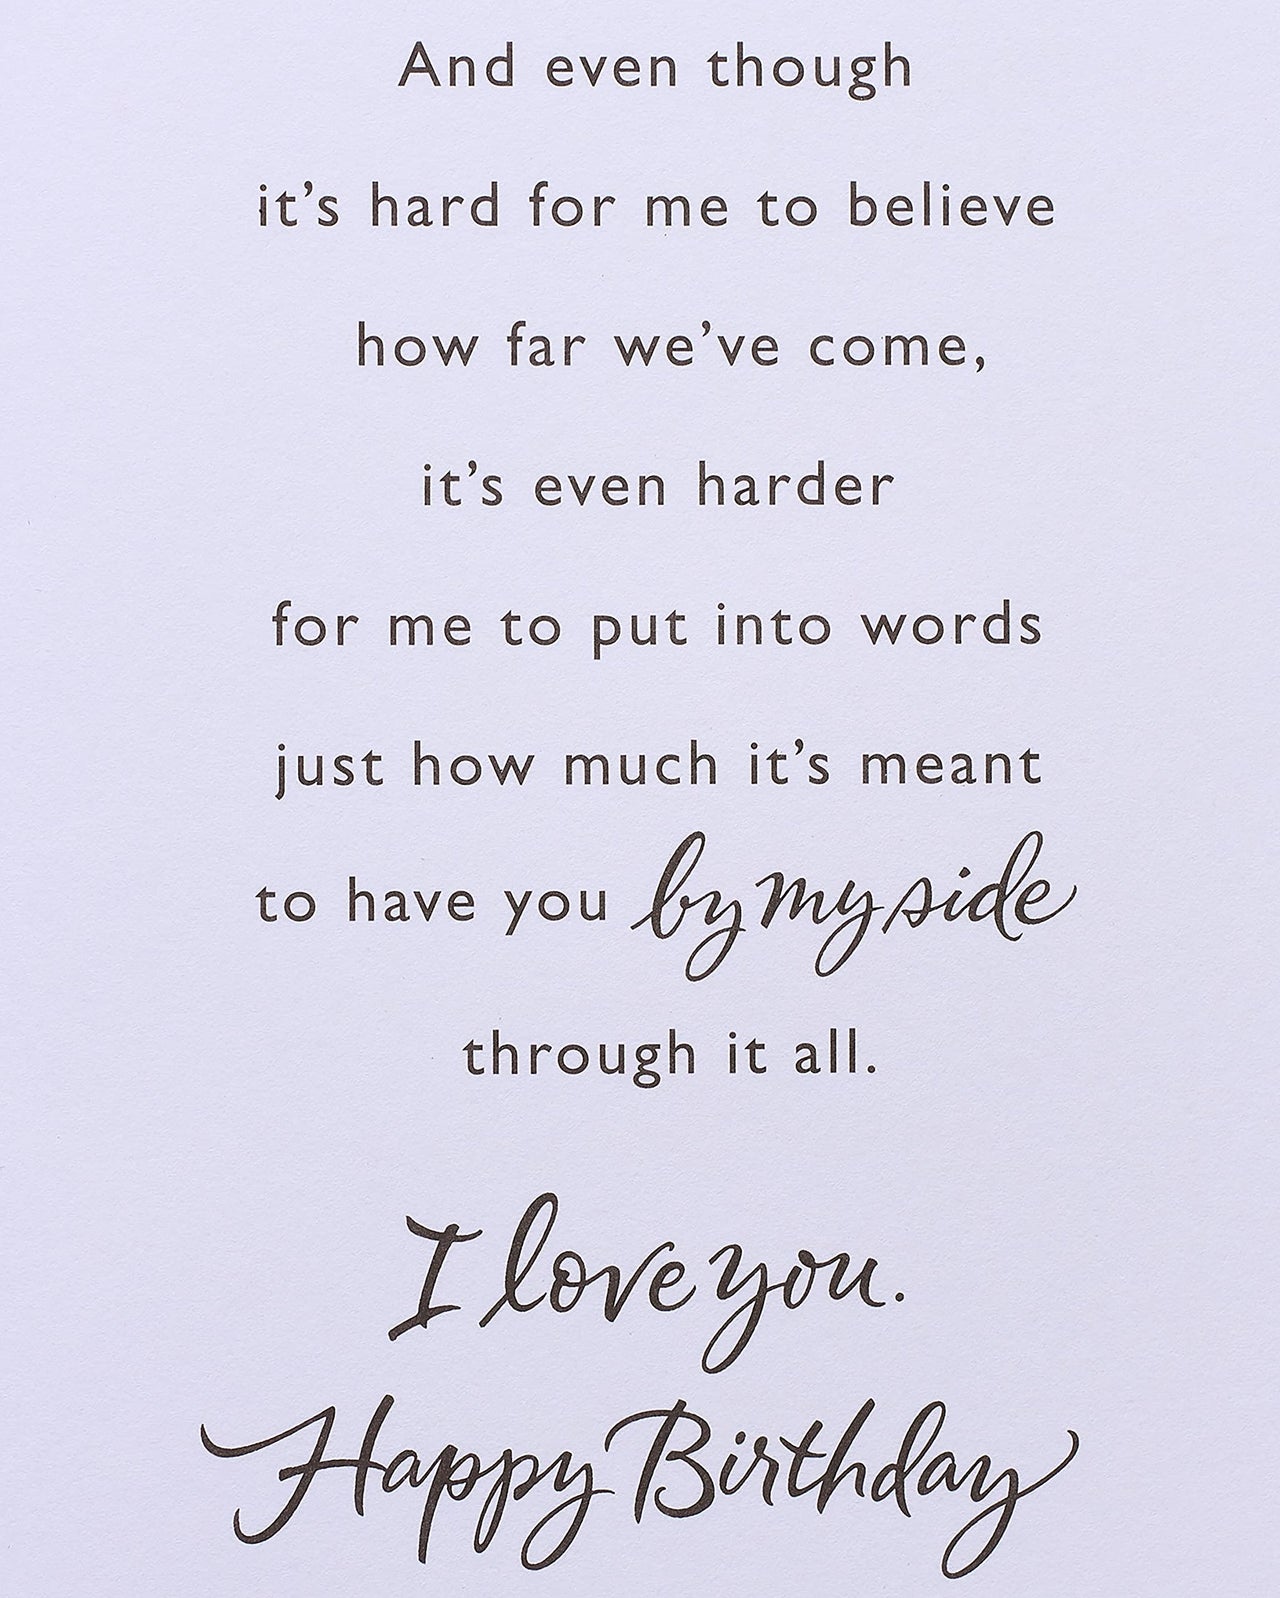 And even though
it’s hard for me to believe
how far we’ve come,
it’s even harder
for me to put into words
just how much it’s meant
to have you by my side
through it all.
I love you.
Happy Birthday